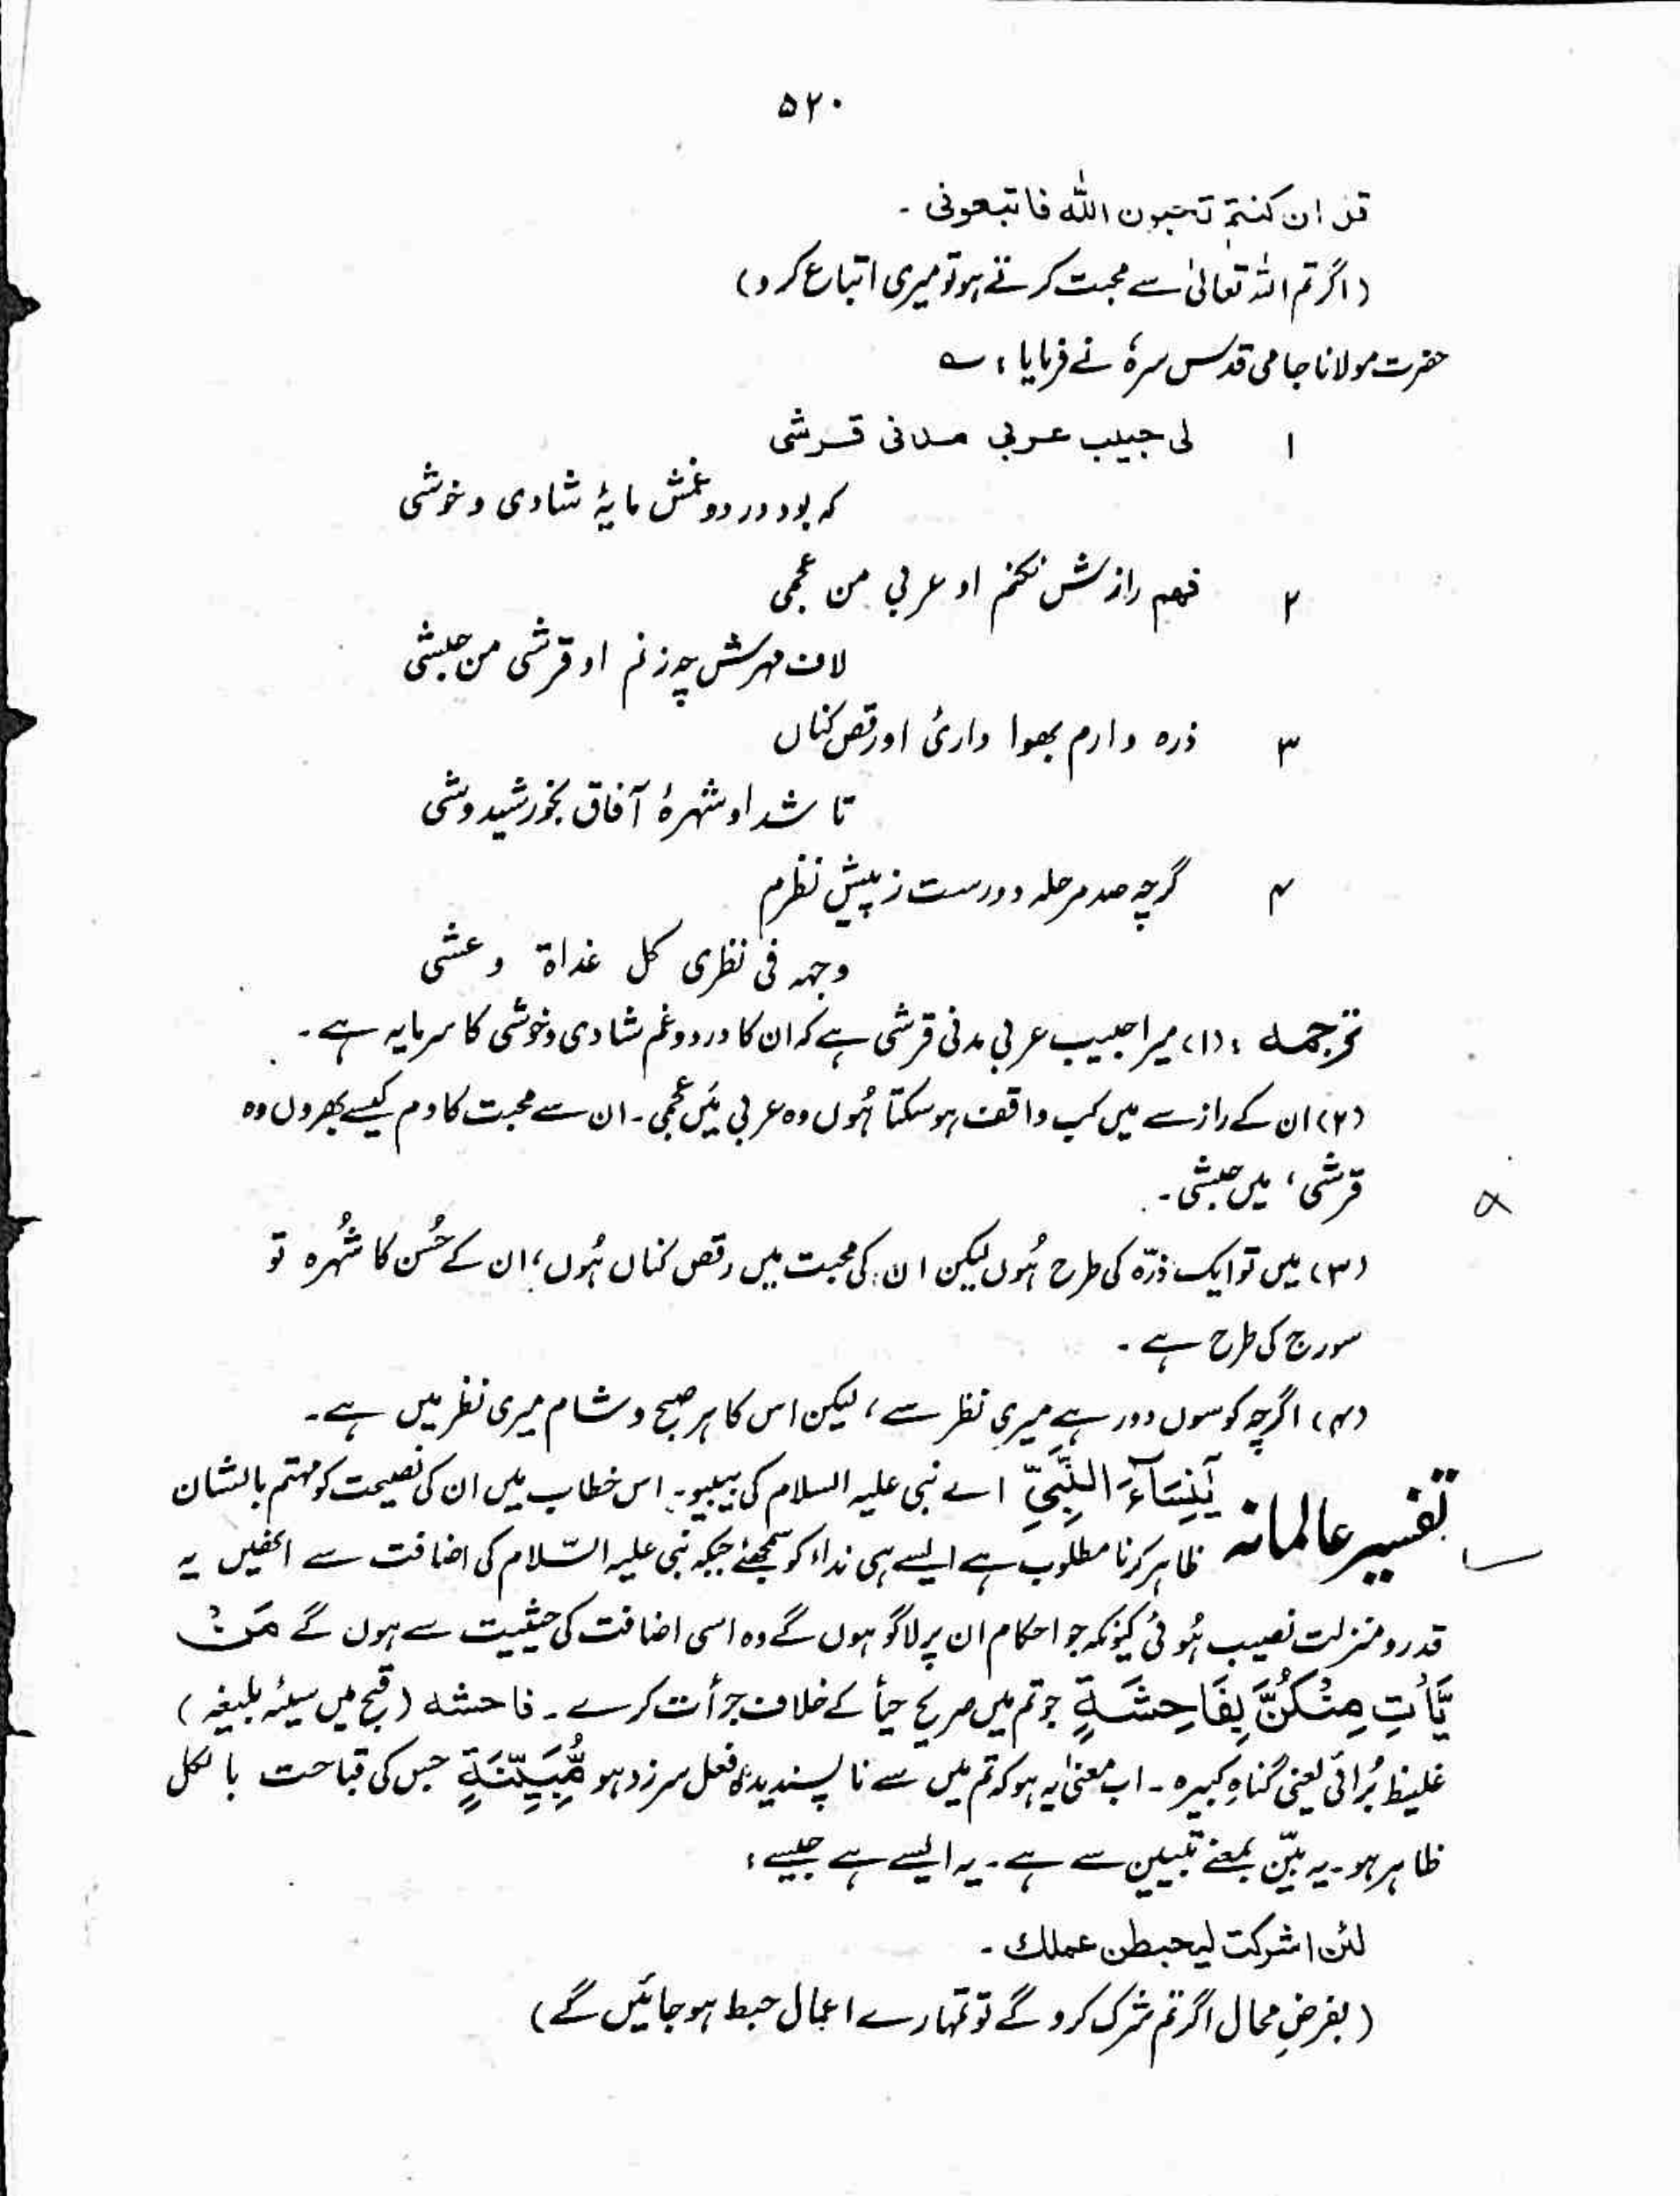 ۵۲۰
قل ان کنتم تحبون اللّٰه فاتبعونی ۔
(اگر تم اللہ تعالیٰ سے محبت کرتے ہو تو میری اتباع کرو)
حضرت مولانا جامی قدس سرہٗ نے فرمایا : ؎
۱ لی حبیب عربی مدنی قرشی
کہ بود درد و غمش مایۂ شادی و خوشی
۲ فہم رازش نکنم او عربی من عجمی
لاف مہرش چہ زنم او قرشی من حبشی
۳ ذرہ وارم بھوا داریٔ او رقص کناں
تا شد او شہرۂ آفاق بخورشید وشی
۴ گرچہ صد مرحلہ دورست ز پیش نظرم
وجہہ فی نظری کل غداۃ و عشی
ترجمہ : (۱) میرا حبیب عربی مدنی قرشی ہے کہ ان کا درد و غم شادی و خوشی کا سرمایہ ہے ۔
(۲) ان کے راز سے میں کب واقف ہو سکتا ہُوں وہ عربی مَیں عجمی ۔ ان سے محبت کا دم کیسے بھروں وہ
قرشی ، میں حبشی ۔
(۳) میں تو ایک ذرّہ کی طرح ہُوں لیکن ان کی محبت میں رقص کناں ہُوں ، ان کے حُسن کا شُہرہ تو
سورج کی طرح ہے ۔
(۴) اگرچہ کوسوں دور ہے میری نظر سے ، لیکن اس کا ہر صبح و شام میری نظر میں ہے ۔
تفسیر عالمانہ یٰنِسَآءَ النَّبِیِّ اے نبی علیہ السلام کی بیبیو ۔ اس خطاب میں ان کی نصیحت کو مہتم بالشان
ظاہر کرنا مطلوب ہے ایسے ہی نداء کو سمجھئے جبکہ نبی علیہ السّلام کی اضافت سے انھیں یہ
قدر و منزلت نصیب ہُوئی کیونکہ جو احکام ان پر لاگو ہوں گے وہ اسی اضافت کی حیثیت سے ہوں گے مَنْ
یَّاْتِ مِنْکُنَّ بِفَاحِشَةٍ جو تم میں صریح حیأ کے خلاف جرأت کرے ۔ فاحشہ (قبح میں سیئہ بلیغہ)
غلیظ بُرائی یعنی گناہِ کبیرہ ۔ اب معنیٰ یہ ہو کہ تم میں سے ناپسندیدہ فعل سرزد ہو مُّبَیِّنَةٍ جس کی قباحت بالکل
ظاہر ہو ۔ یہ بیّن بمعنے تبیین سے ہے ۔ یہ ایسے ہے جیسے :
لئن اشرکت لیحبطن عملك ۔
(بفرضِ محال اگر تم شرک کرو گے تو تمہارے اعمال حبط ہو جائیں گے)